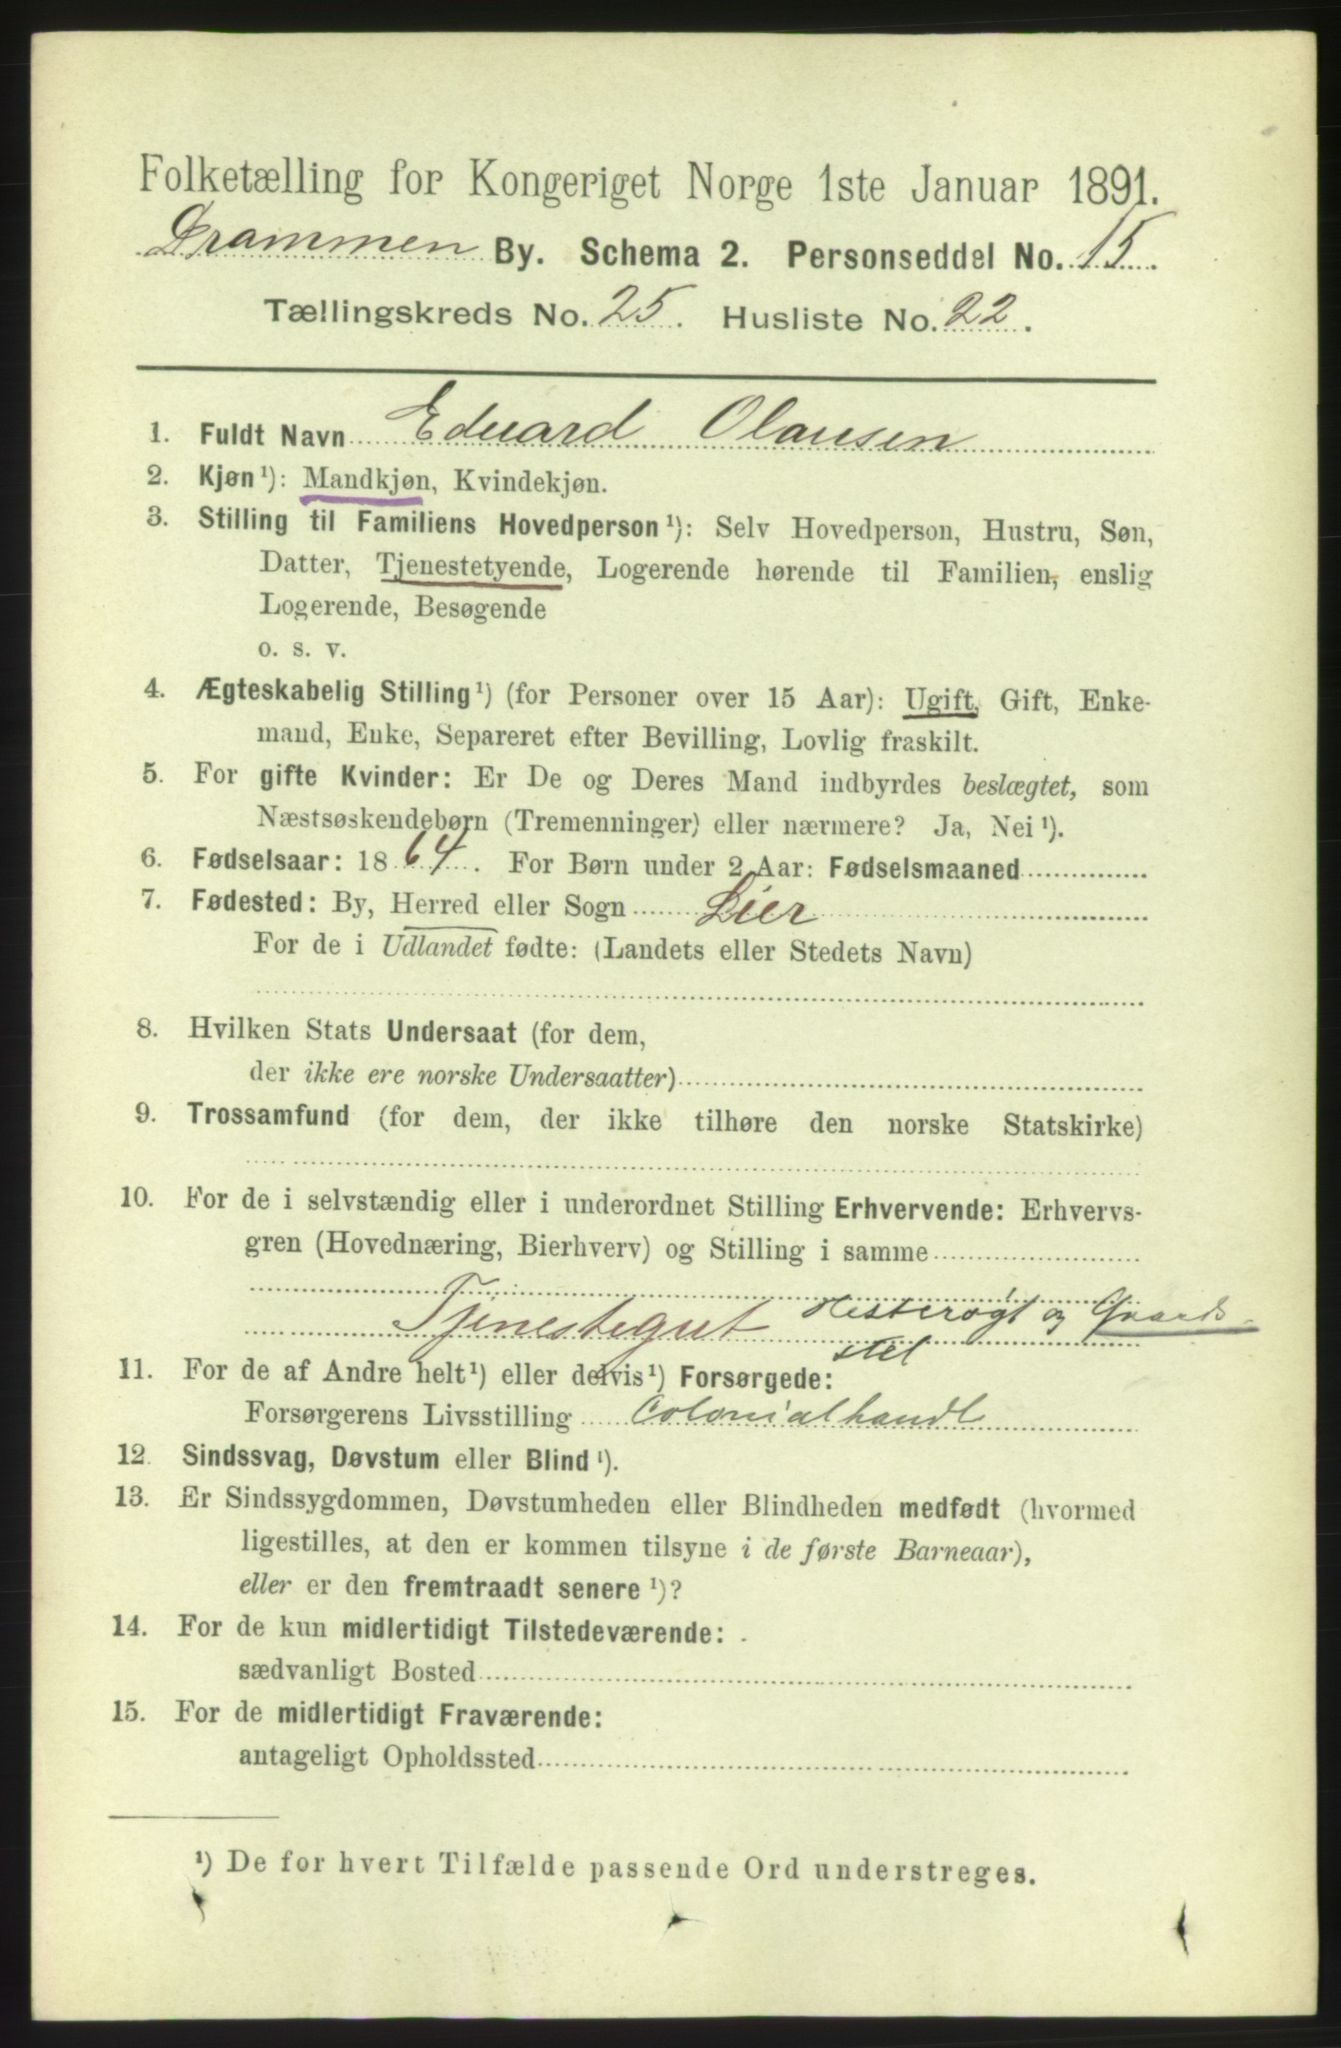 Folketælling for Kongeriget Norge 1ste Januar 1891.
Drammen By. Schema 2. Personseddel No. 15.
Tællingskreds No. 25. Husliste No. 22.
1. Fuldt Navn Eduard Olausen
2. Kjøn¹): Mandkjøn, Kvindekjøn.
3. Stilling til Familiens Hovedperson¹): Selv Hovedperson, Hustru, Søn,
Datter, Tjenestetyende, Logerende hørende til Familien, enslig
Logerende, Besøgende
o. s. v.
4. Ægteskabelig Stilling¹) (for Personer over 15 Aar): Ugift, Gift, Enke-
mand, Enke, Separeret efter Bevilling, Lovlig fraskilt.
5. For gifte Kvinder: Er De og Deres Mand indbyrdes beslægtet, som
Næstsøskendebørn (Tremenninger) eller nærmere? Ja, Nei¹).
6. Fødselsaar: 1864. For Børn under 2 Aar: Fødselsmaaned
7. Fødested: By, Herred eller Sogn Lier
For de i Udlandet fødte: (Landets eller Stedets Navn)
8. Hvilken Stats Undersaat (for dem,
der ikke ere norske Undersaatter)
9. Trossamfund (for dem, der ikke tilhøre den norske Statskirke)
10. For de i selvstændig eller i underordnet Stilling Erhvervende: Erhvervs-
gren (Hovednæring, Bierhverv) og Stilling i samme
Tjenestegut Hesterøgt og Gaards-
stel
11. For de af Andre helt¹) eller delvis¹) Forsørgede:
Forsørgerens Livsstilling Colonialhandl
12. Sindssvag, Døvstum eller Blind¹).
13. Er Sindssygdommen, Døvstumheden eller Blindheden medfødt (hvormed
ligestilles, at den er kommen tilsyne i de første Barneaar),
eller er den fremtraadt senere¹)?
14. For de kun midlertidigt Tilstedeværende:
sædvanligt Bosted
15. For de midlertidigt Fraværende:
antageligt Opholdssted
¹) De for hvert Tilfælde passende Ord understreges.